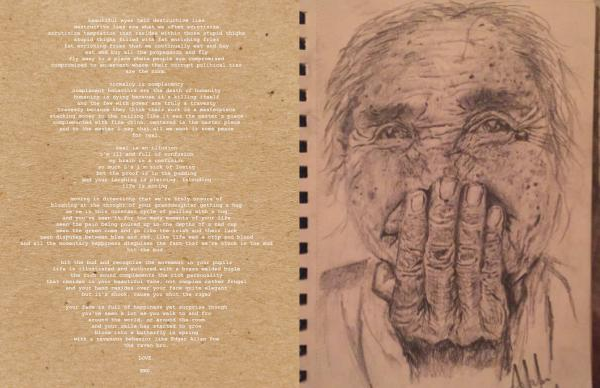 beautiful eyes hold destructive lies
destructive lies are what we often scrutinize
scrutinize temptation that resides within those stupid thighs
stupid thighs filled with fat enriching fries
fat enriching fries that we continually eat and buy
eat and buy all the propaganda and fly
fly away to a place where people are compromised
compromised to an extent where their corrupt political ties
are the norm.
normalcy is complacency
complacent behaviors are the death of humanity
humanity is dying because it's killing itself
and the few with power are truly a travesty
travesty because they think their work is a masterpiece
stacking money to the ceiling like it was the master's piece
complemented with fine china, centered in the master piece
and to the master I say that all we want is some peace
for real.
Real is an illusion
I'm ill and full of confusion
my brain is a confusion
so much I'm sick of losing
but the proof is in the pudding
and your laughing is piercing, intending
life is moving
moving in directions that we're truly unsure of
blushing at the thought of your granddaughter getting a hug
we're in this constant cycle of pulling with a tug
and you've seen it for too many moments of your life
seen the pain being poured up in the depths of a red cup
seen the green come and go like the Irish and their luck
seen disputes between blue and red, like life was a crip and blood
and all the monentary happiness disguises the fact that we're stuck in the mud
hit the bud.
hit the bud and recognize the movement in your pupils
life is illustrated and authored with a brass welded bugle
the rich sound complements the rich personality
that resides in your beautiful face, not complex rather frugal
and your hand resides over your face quite elegant
but it's shook, cause you shot the rigor
your face is full of happiness yet surprise though
you've seen a lot as you walk to and fro
around the world, or around the room
and your smile has started to grow
bloom into a butterfly in spring
with a ravenous behavior like Edgar Allen Poe
the raven bro.
LOVE.
END.